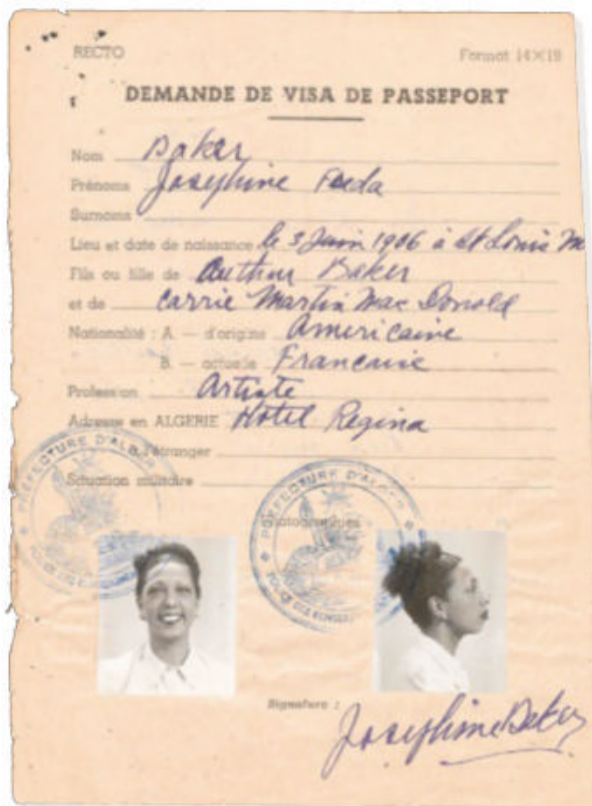 RECTO Format 14×18
DEMANDE DE VISA DE PASSEPORT
Nom Baker
Prénoms Josephine Freda
Surnoms
Lieu et date de naissance le 3 Juin 1906 à St Louis M
Fils ou fille de Arthur Baker
et de Carrie Martin Mac Donald
Nationalité : A. — d'origine Americaine
B. — actuelle Francaise
Profession Artiste
Adresse en ALGERIE Hotel Regina
à l'étranger
Situation militaire
PREFECTURE D'ALGER
PREFECTURE D'ALGER
POLICE DES
Photographies
Signature :
Josephine Baker